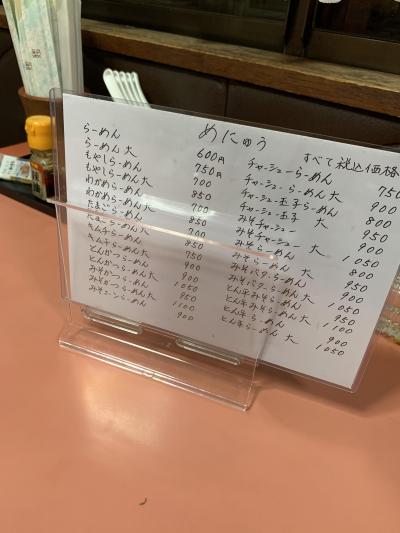 めにゅう
すべて税込価格
らーめん 600円
らーめん 大 750
もやしらーめん 700
もやしらーめん 大 850
わかめらーめん 700
わかめらーめん 大 850
たまごらーめん 700
たまごらーめん 大 850
キムチらーめん 750
キムチらーめん 大 900
とんかつらーめん 900
とんかつらーめん 大 1050
みそかつらーめん 950
みそかつらーめん 大 1100
みそコーンらーめん 900
チャーシューらーめん 750
チャーシューらーめん 大 900
チャーシュー玉子らーめん 800
チャーシュー玉子 大 950
みそチャーシュー 900
みそチャーシュー 大 1050
みそらーめん 800
みそらーめん 大 950
みそバターらーめん 900
みそバターらーめん 大 1050
とん辛みそらーめん 950
とん辛みそらーめん 大 1100
とん辛らーめん 900
とん辛らーめん 大 1050